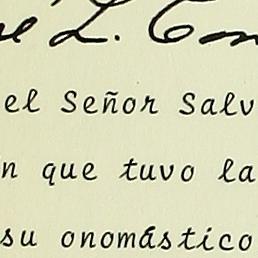 é L. Com
el Señor Salv
n que tuvo la
su onomástico